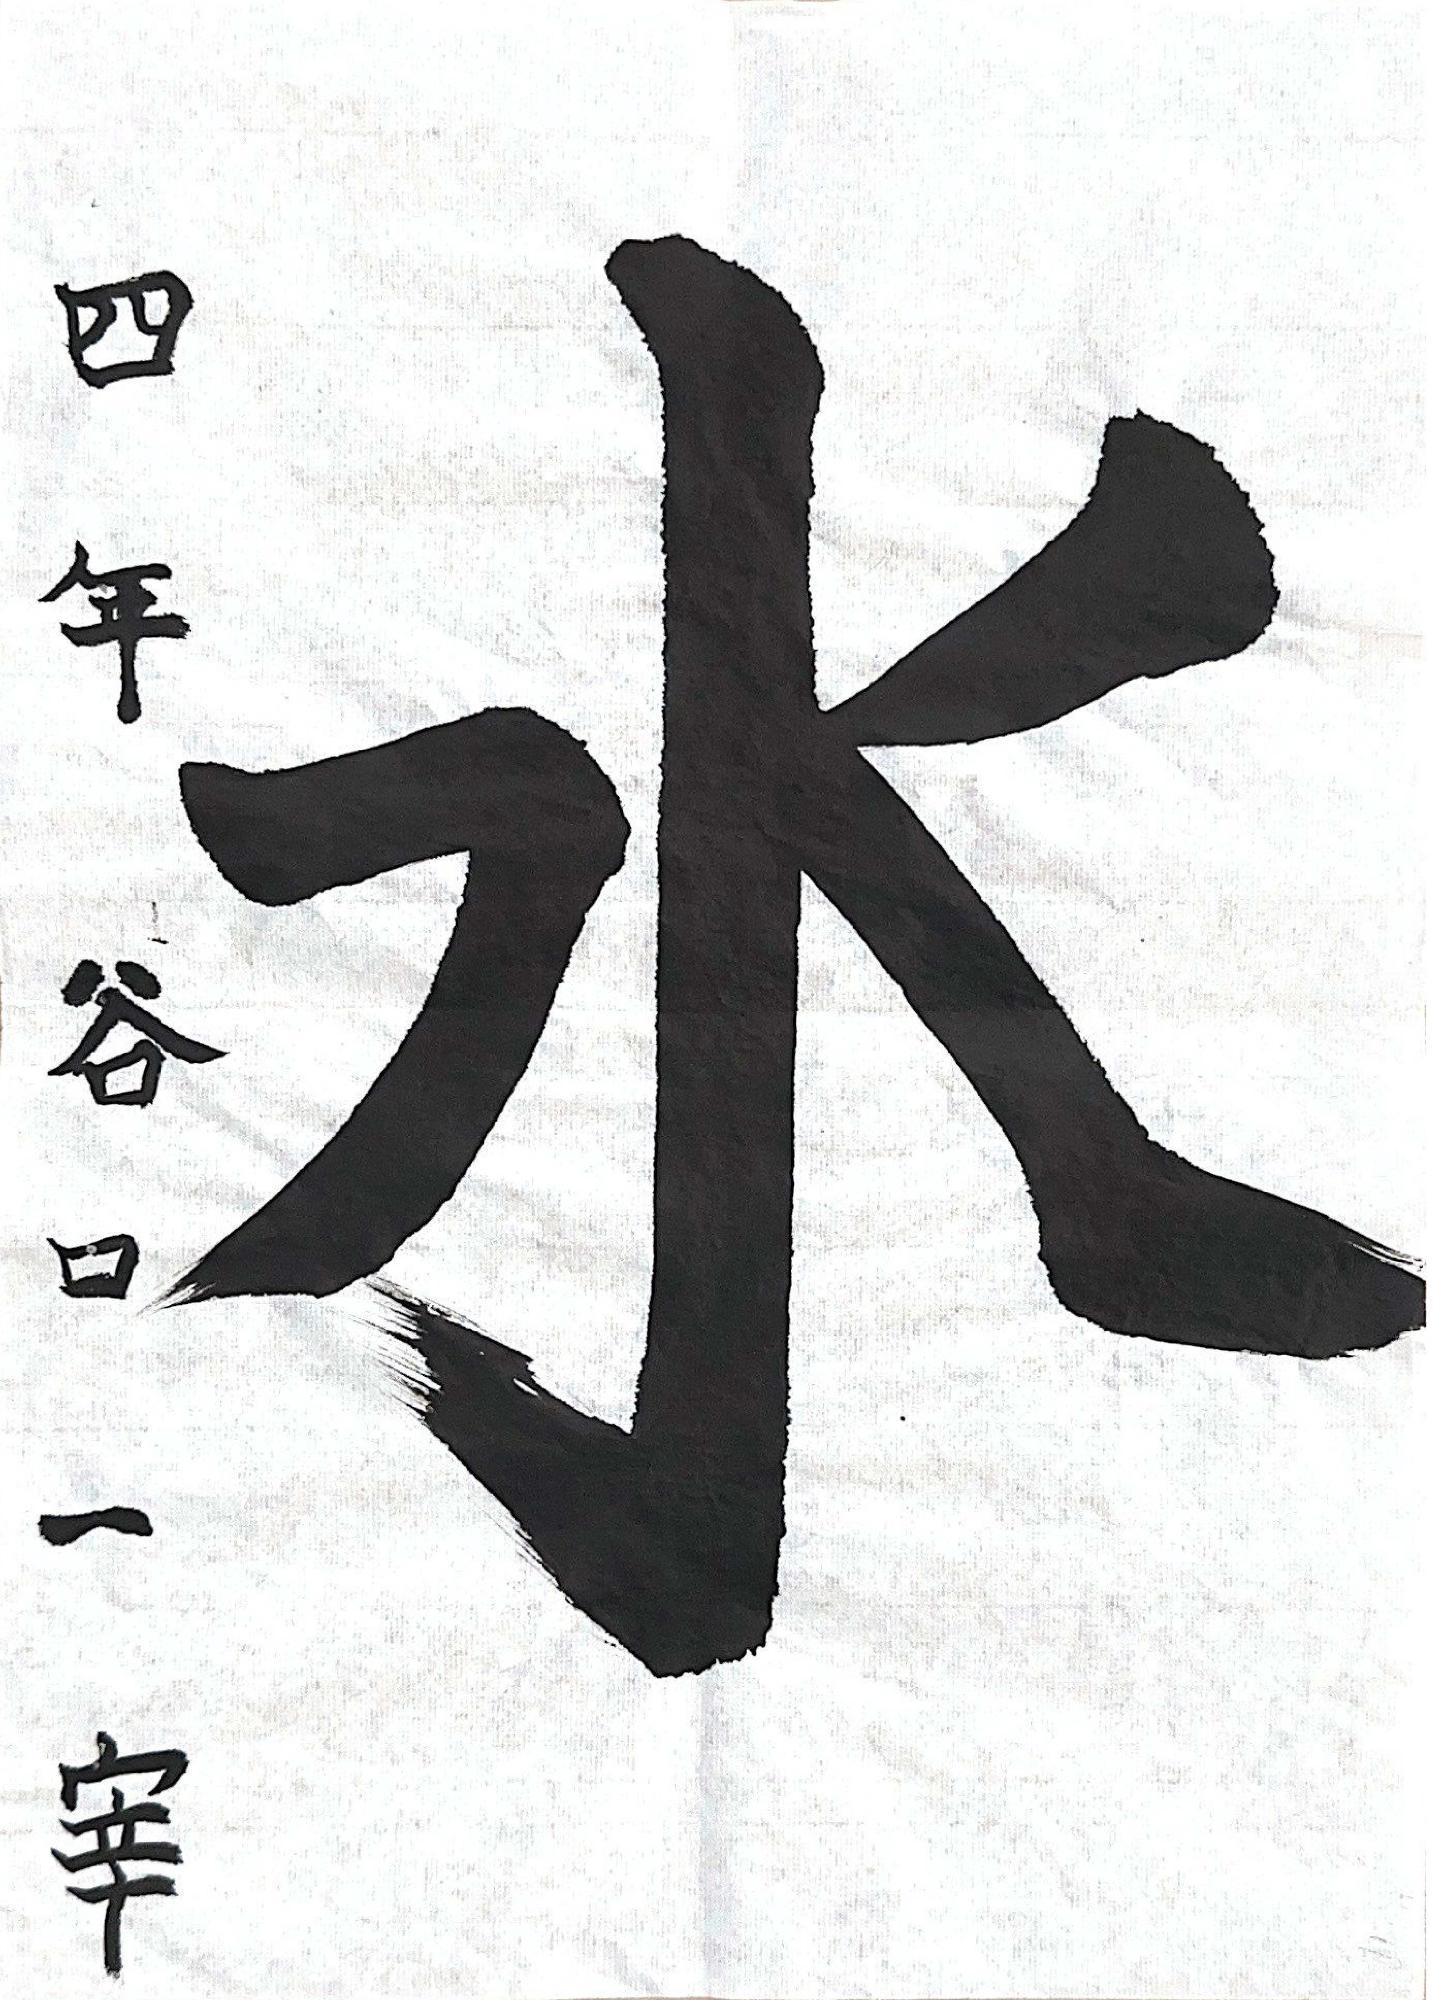 水
四年谷口一宰